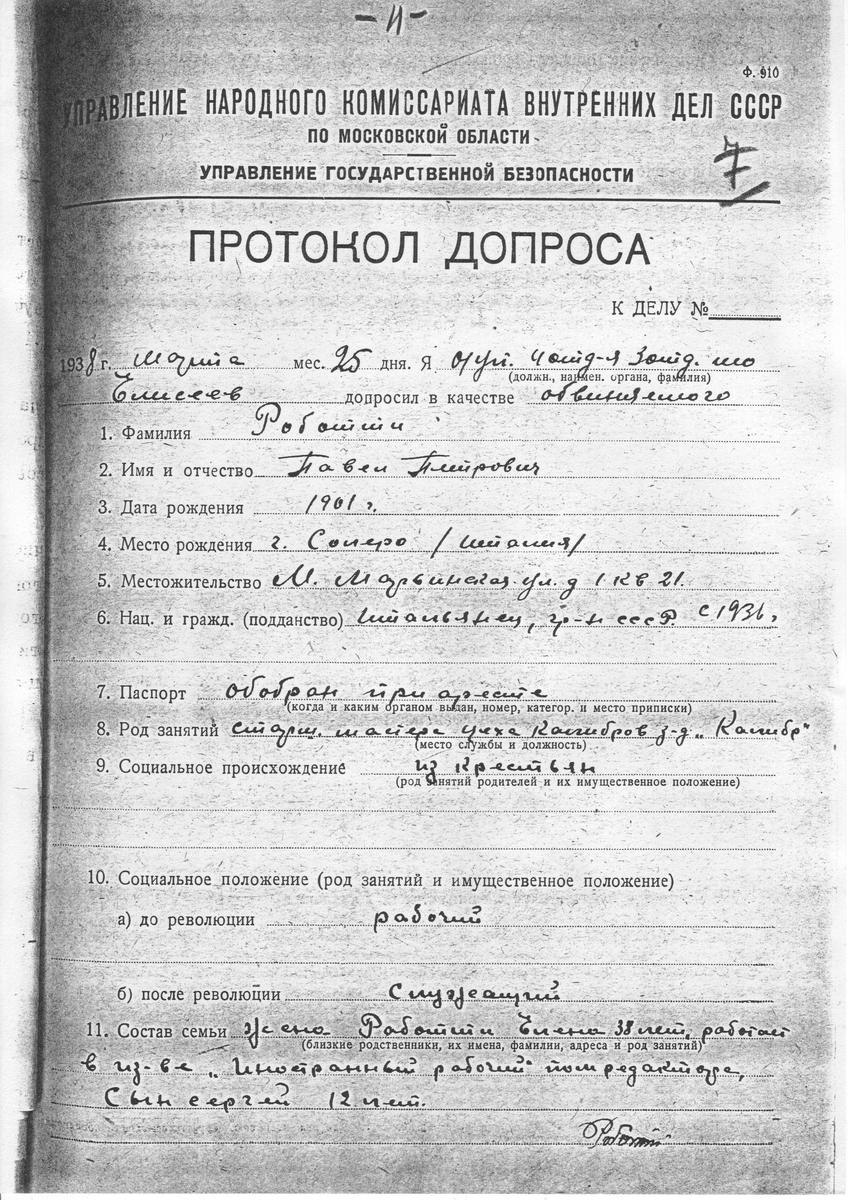 -11-
Ф. 910
УПРАВЛЕНИЕ НАРОДНОГО КОМИССАРИАТА ВНУТРЕННИХ ДЕЛ СССР
ПО МОСКОВСКОЙ ОБЛАСТИ
УПРАВЛЕНИЕ ГОСУДАРСТВЕННОЙ БЕЗОПАСНОСТИ
7
ПРОТОКОЛ ДОПРОСА
К ДЕЛУ №
1938 г. марта мес. 25 дня. Я о/уп. 4 отд-я 3 отд.
(должн., наимен. органа, фамилия)
Елисеев допросил в качестве обвиняемого
1. Фамилия Роботти
2. Имя и отчество Павел Петрович
3. Дата рождения 1901 г.
4. Место рождения г. Солеро /Италия/
5. Местожительство М. Марьинская ул. д 1 кв 21.
6. Нац. и гражд. (подданство) Итальянец, гр-н СССР. с 1936 г
7. Паспорт отобран при аресте
(когда и каким органом выдан, номер, категор. и место приписки)
8. Род занятий старш. мастера цеха Калибров з-д „Калибр"
(место службы и должность)
9. Социальное происхождение из крестьян
(род занятий родителей и их имущественное положение)
10. Социальное положение (род занятий и имущественное положение)
а) до революции рабочий
б) после революции Служащий
11. Состав семьи Жена Работти Елена 38 лет, работает
(близкие родственники, их имена, фамилии, адреса и род занятий)
в из-ве „Иностранный рабочий" пом редактора,
Сын сергей 12 лет.
Роботти